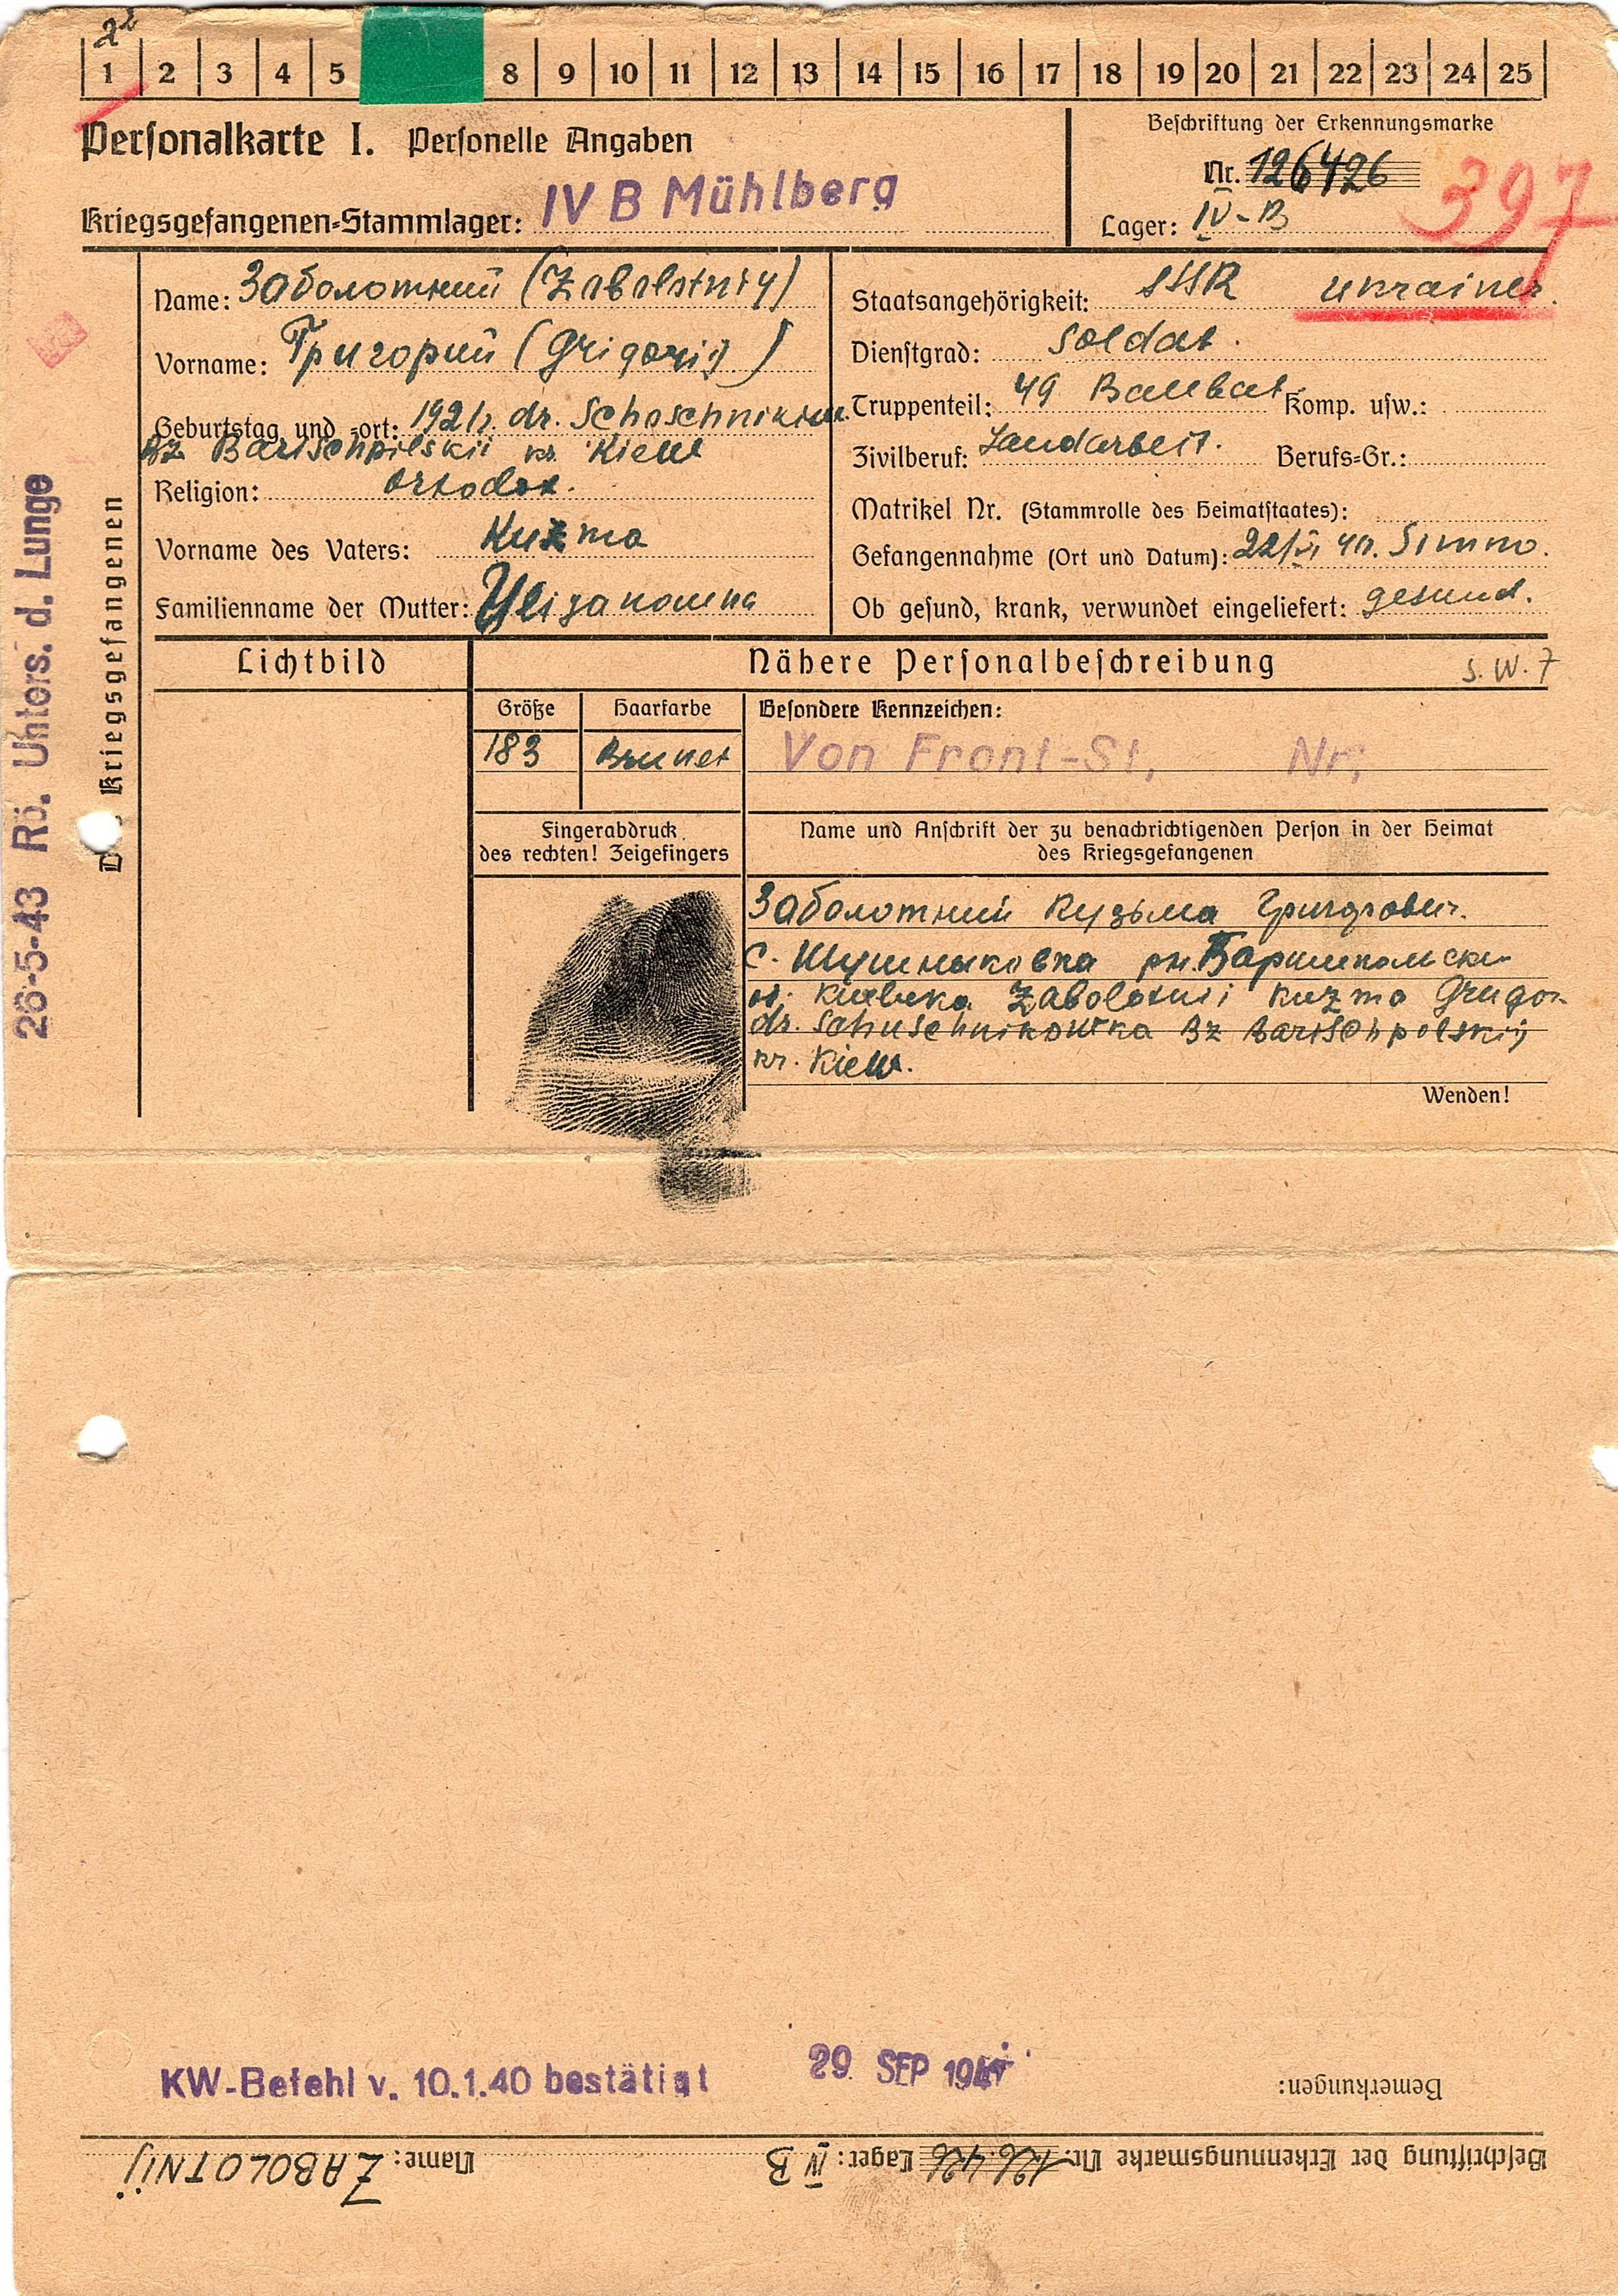 2²
1 2 3 4 5 8 9 10 11 12 13 14 15 16 17 18 19 20 21 22 23 24 25
Personalkarte I. Personelle Angaben
Kriegsgefangenen-Stammlager: IV B Mühlberg
Beschriftung der Erkennungsmarke
Nr. 126426
Lager: IV-B
397
Name: Заболотний (Zabolotniy)
Vorname: Григорий (Grigorij)
Geburtstag und -ort: 1921. dr. Schoschnikow
Bz Barischpilskii kr. Kiew
Religion: Ortodox.
Vorname des Vaters: Kuzma
Familienname der Mutter:
Staatsangehörigkeit: SSR ukrainer.
Dienstgrad: Soldat.
Truppenteil: 49 Baubat. Komp. usw.:
Zivilberuf: Landarbeit. Berufs-Gr.:
Matrikel Nr. (Stammrolle des Heimatstaates):
Gefangennahme (Ort und Datum): 22/VI 41. Simno.
Ob gesund, krank, verwundet eingeliefert: gesund.
Des Kriegsgefangenen
26-5-43 Rö. Unters. d. Lunge
Lichtbild
Nähere Personalbeschreibung S.W.7
Größe Haarfarbe Besondere Kennzeichen:
183 Brunet Von Front-St, Nr,
Fingerabdruck
des rechten! Zeigefingers
Name und Anschrift der zu benachrichtigenden Person in der Heimat
des Kriegsgefangenen
Заболотний Кузьма Григорович.
с. Шушныковка рн. Баришпольски
Zabolotnii Kuzma Gregor
dr. Schuschnikowka Bz Barischpolskij
kr. Kiew.
Wenden!
KW-Befehl v. 10.1.40 bestätigt 29. SEP 194
Bemerkungen:
Beschriftung der Erkennungsmarke Nr. 126.426 Lager: IV B Name: ZABOLOTNIJ